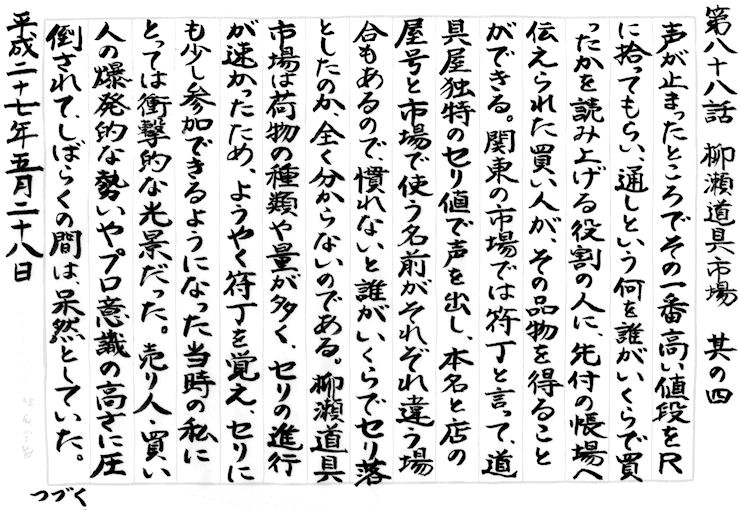 第八十八話　柳瀬道具市場　其の四
声が止まったところでその一番高い値段をR
に拾ってもらい、通しという何を誰がいくらで買
ったかを読み上げる役割の人に、先付の帳場へ
伝えられた買い人が、その品物を得ること
ができる。関東の市場では符丁と言って、道
具屋独特のセリ値で声を出し、本名と店の
屋号と市場で使う名前がそれぞれ違う場
合もあるので、慣れないと誰がいくらでセリ落
としたのか、全く分からないのである。柳瀬道具
市場は荷物の種類や量が多く、セリの進行
が速かったため、ようやく符丁を覚え、セリに
も少し参加できるようになった当時の私に
とっては衝撃的な光景だった。売り人、買い
人の爆発的な勢いやプロ意識の高さに圧
倒されて、しばらくの間は、呆然としていた。
平成二十七年五月二十八日
つづく